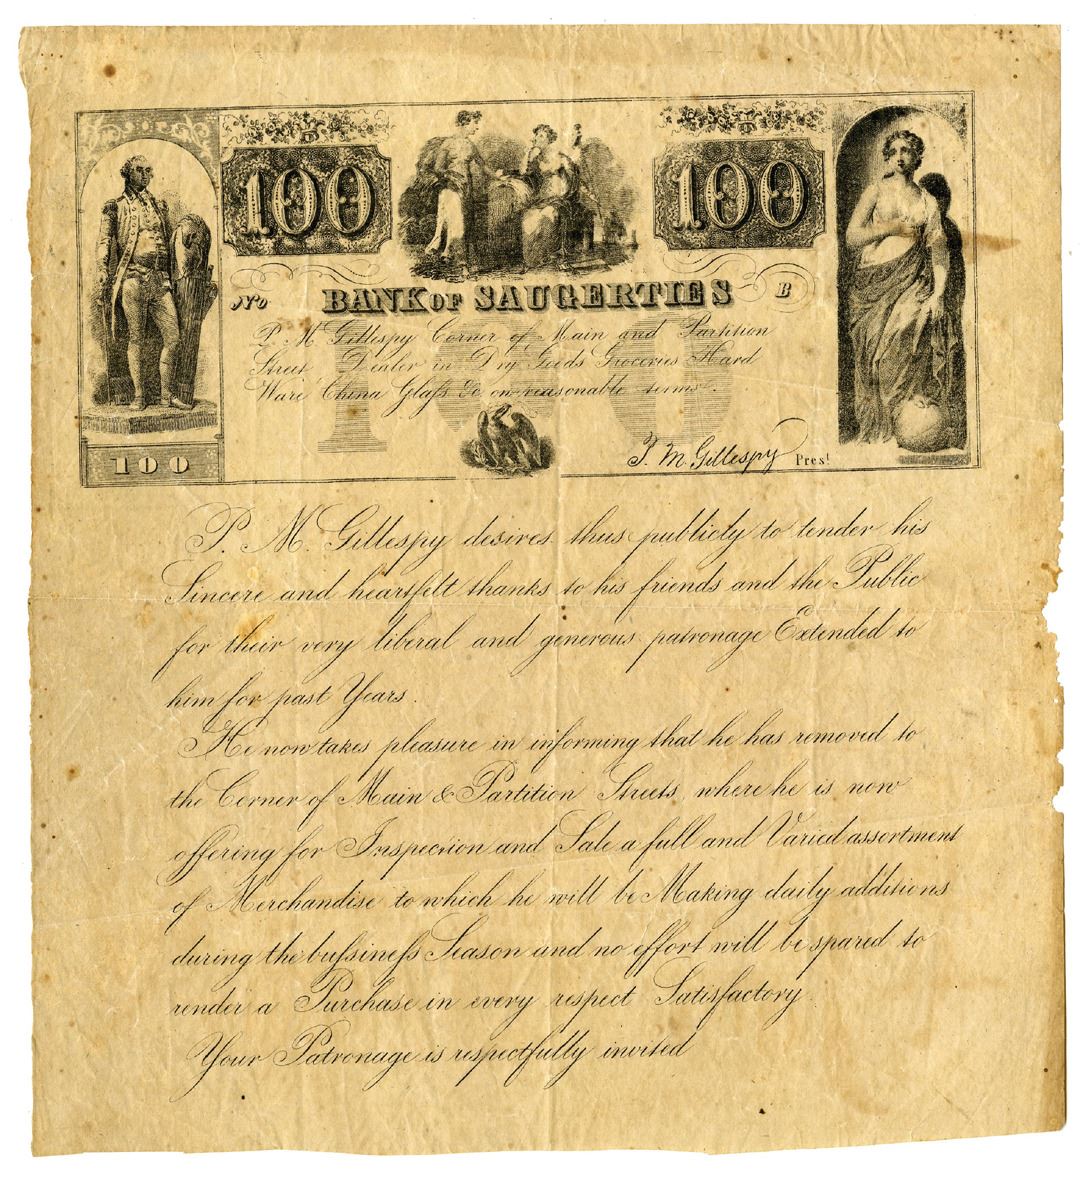 100 100
No BANK OF SAUGERTIES B
P. M. Gillespy Corner of Main and Partition
Street Dealer in Dry Goods Groceries Hard
Ware China Glaſs &c on reasonable terms.
100
100
P. M. Gillespy Prest
P. M. Gillespy desires thus publicly to tender his
Sincere and heartfelt thanks to his friends and the Public
for their very liberal and generous patronage Extended to
him for past Years.
He now takes pleasure in informing that he has removed to
the Corner of Main & Partition Streets, where he is now
offering for Inspection and Sale a full and Varied assortment
of Merchandise to which he will be Making daily additions
during the buſsineſs Season and no effort will be spared to
render a Purchase in every respect Satisfactory.
Your Patronage is respectfully invited